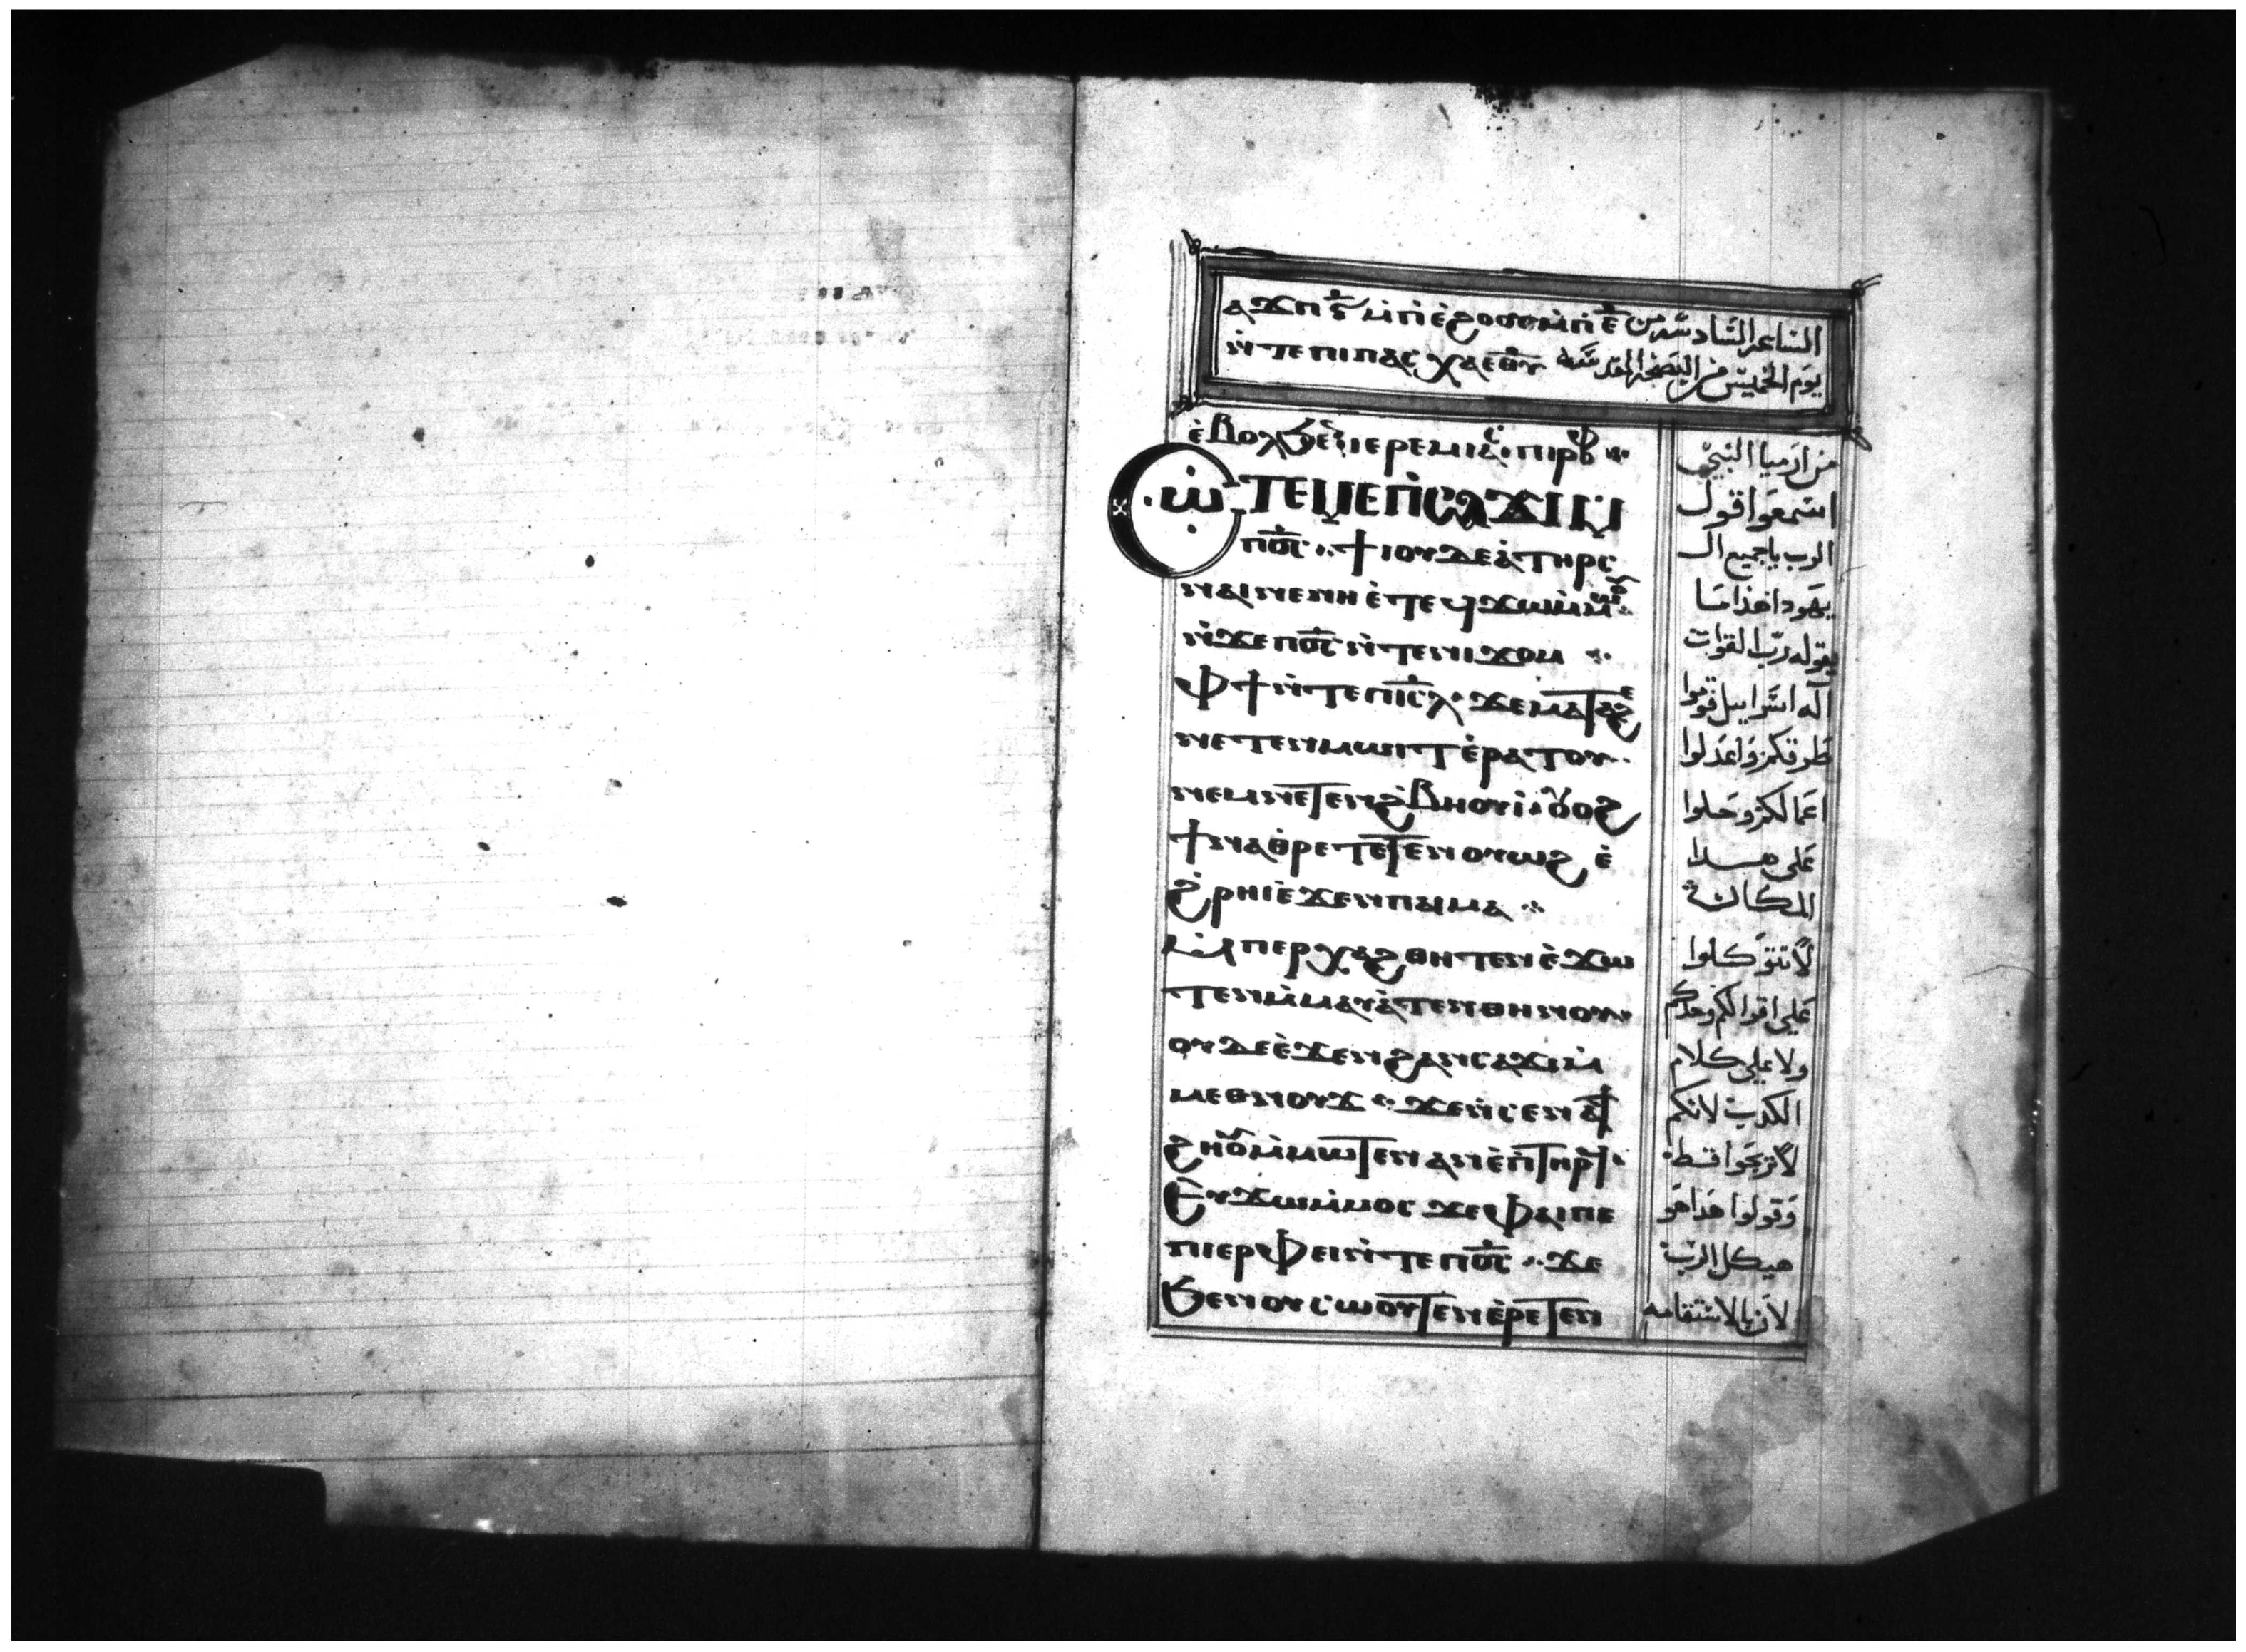 ⲁϫⲡ ⲋ̄ ⲙ̀ⲡⲓⲉ̀ϩⲟⲟⲩ ⲙ̀ⲡⲓ ⲉ̄
ⲛ̀ⲧⲉ ⲡⲓⲡⲁⲥⲭⲁ ⲉ̄ⲑ̄ⲩ̄
الساعه السادسه من
يوم الخميس من البصخه المقدسه
ⲉ̀ⲃⲟⲗϧⲉⲛ ⲓⲉⲣⲉⲙⲓⲁⲥ ⲡⲓⲡⲣⲟⲫ
ⲥⲱⲧⲉⲙ ⲉⲡⲥⲁϫⲓ ⲙ̀
ⲡⲟ̄ⲥ̄ ϯⲓⲟⲩⲇⲉⲁ̀ ⲧⲏⲣⲥ
ⲛⲁⲓ ⲛⲉ ⲛⲏ ⲉ̀ⲧⲉϥϫⲱ ⲙ̀ⲙⲱⲟⲩ
ⲛ̀ϫⲉ ⲡⲟ̄ⲥ̄ ⲛ̀ⲧⲉ ⲛⲓϫⲟⲙ
ⲫϯ ⲛ̀ⲧⲉ ⲡⲓⲥ̄ⲗ̄ ϫⲉ ⲙⲁⲧⲁϩⲉ
ⲛⲉⲧⲉⲛⲙⲱⲓⲧ ⲉ̀ⲣⲁⲧⲟⲩ
ⲛⲉⲙ ⲛⲉⲧⲉⲛϩⲃⲏⲟⲩⲓ̀ ⲟⲩⲟϩ
ϯⲛⲁⲑⲣⲉⲧⲉⲧⲉⲛⲟⲩⲱϩ ⲉ̀
ϩⲣⲏⲓ ⲉϫⲉⲛ ⲡⲁⲓⲙⲁ
ⲙ̀ⲡⲉⲣⲭⲁϩⲑⲏⲧⲉⲛ ⲉ̀ϫⲱ
ⲧⲉⲛ ⲙ̀ⲙⲁⲩⲁ̀ⲧⲉⲛⲑⲏⲛⲟⲩ
ⲟⲩⲇⲉ ⲉ̀ϫⲉⲛ ϩⲁⲛⲥⲁϫⲓ ⲙ̀
ⲙⲉⲑⲛⲟⲩϫ ϫⲉ ⲛ̀ⲥⲉⲛⲁϯ
ϩⲏⲟⲩ ⲙ̀ⲙⲱⲧⲉⲛ ⲁⲛ ⲉ̀ⲡⲧⲏⲣϥ
ⲉⲩϫⲱ ⲙ̀ⲙⲟⲥ ϫⲉ ⲫⲁⲓ ⲡⲉ
ⲡⲓⲉⲣⲫⲉⲓ ⲛ̀ⲧⲉ ⲡⲟ̄ⲥ̄ ϫⲉ
ϧⲉⲛ ⲟⲩⲥⲱⲟⲩⲧⲉⲛ ⲉ̀ⲣⲉⲧⲉⲛ
من ارميا النبي
اسمعوا قول
الرب يا جميع ال
يهودا هذا ما
يقوله رب القوات
اله اسراييل قوموا
طرقكم واعدلوا
اعمالكم وحلوا
على هذا
المكان
لا تتوكلوا
على اقوالكم وحدكم
ولا على كلام
الكدب لانكم
لا تربحوا قط
وقولوا هذا هو
هيكل الرب
لان بالاستقامه